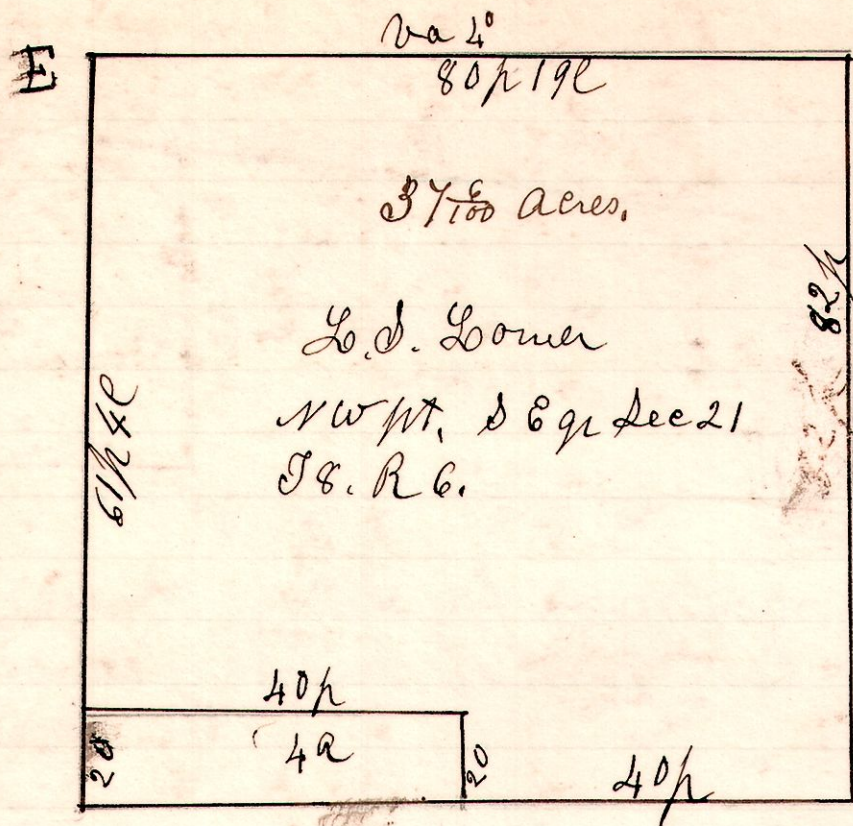 va 4°
E
80p 19l
37 6/100 acres.
82p
L. S. 
NW pt. S E qr Sec 21
T8. R 6.
61p 4l
40p
4a
20
20
40p